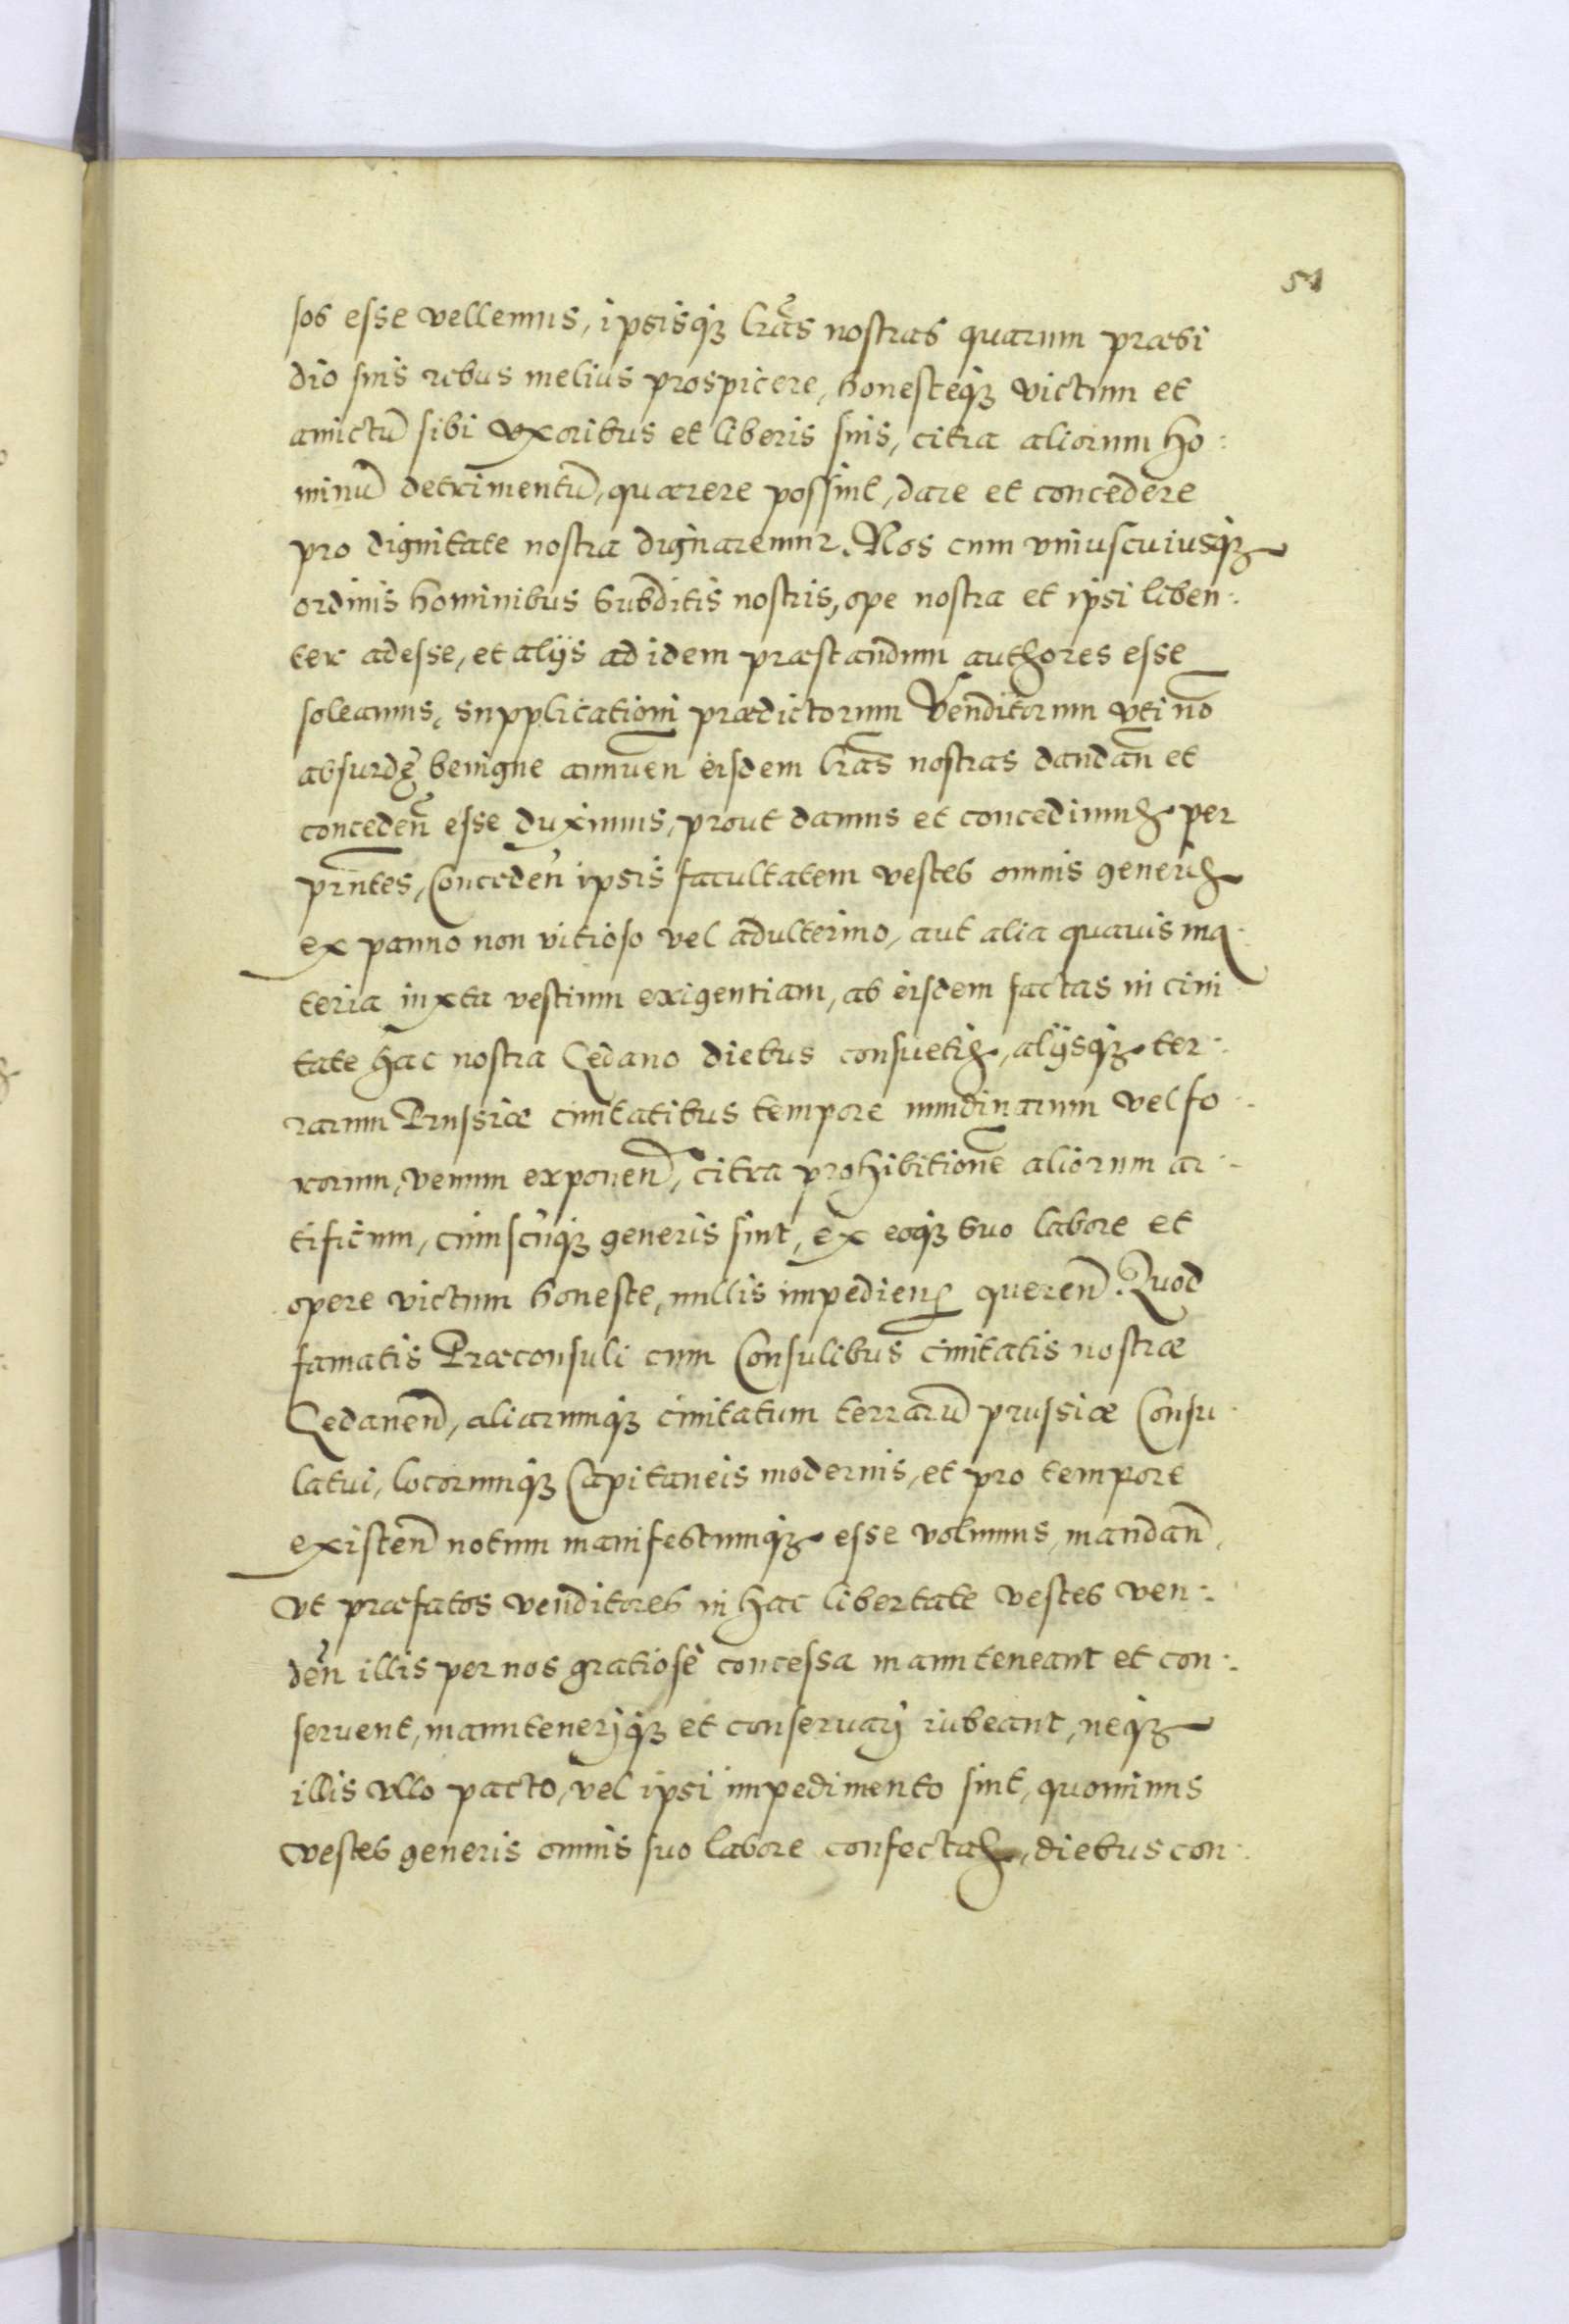 51
sos esse vellemus, ipsisq₃ lr̃as nostras quarum præsi
dio suis rebus melius prospicere, honesteq₃ victum et
amictū sibi vxoribus et liberis suis, citra aliorum ho:
minū detrimentū, quærere possint, dare et concedere
pro dignitate nostra dignaremur. Nos cum vniuscuiusq₃
ordinis hominibus subditis nostris, ope nostra et ipsi liben:
ter adesse, et alijs ad idem præstandum authores esse
soleamus, supplicationi prædictorum Venditorum vti nō
absurdę benigne annuen̄ eisdem lr̃as nostras dandan̄ et
conceden̄ esse duximus, prout damus et concedimus per
pn̄tes, Conceden̄ ipsis facultatem vestes omnis generis
ex panno non vitioso vel adulterino, aut alia quauis ma
teria iuxta vestium exigentiam, ab eisdem factas in ciui
tate hac nostra Gedano diebus consuetis, alijsq₃ ter:
rarum Prussiæ ciuitatibus tempore nundinarum vel fo:
rorum, venum exponen̄, citra prohibitionē aliorum ar:
tificum, cuiuscūq₃ generis sint, ex eoq₃ suo labore et
opere victum honeste, nullis impedien̄ queren̄. Quod
famatis Præconsuli cum Consulibus ciuitatis nostræ
Gedanen̄, aliarumq₃ ciuitatum terrarū prussiæ Consu
latui, locorumq₃ Capitaneis modernis, et pro tempore
existen̄ notum manifestumq₃ esse volumus, mandan̄,
vt præfatos venditores in hac libertate vestes ven:
den̄ illis per nos gratiosè concessa manuteneant et con:
seruent, manutenerjq₃ et conseruarj iubeant, neq₃
illis vllo pacto, vel ipsi impedimento sint, quominus
vestes generis omnis suo labore confectas, diebus con